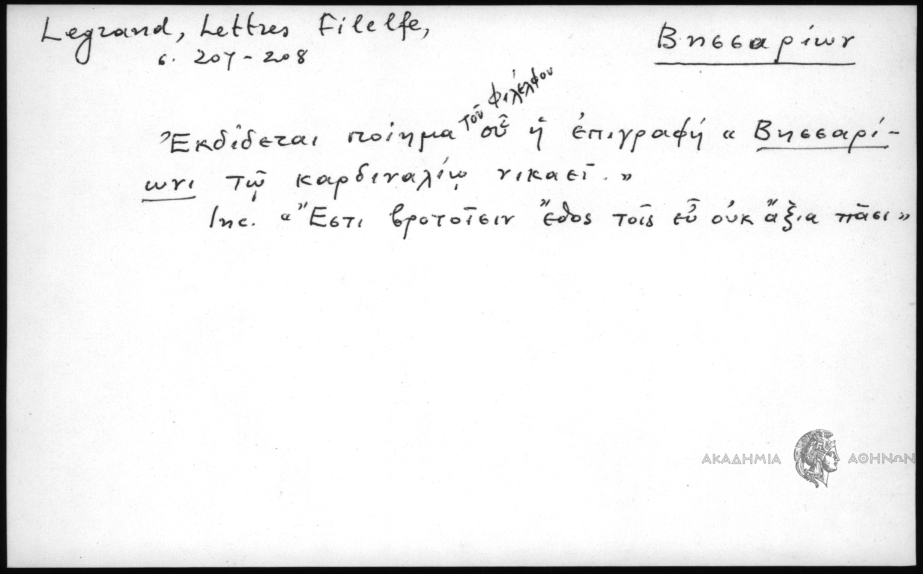 Legrand, Lettres Filelfe,
σ. 207-208
Βησσαρίων
Ἐκδίδεται ποίημα τοῦ Φιλέλφου οὗ ἡ ἐπιγραφή «Βησσαρί-
ωνι τῷ καρδιναλίῳ νικαεῖ.»
Inc. «Ἔστι βροτοῖσιν ἔθος τοῖς εὖ οὐκ ἄξια πᾶσι»
ΑΚΑΔΗΜΙΑ ΑΘΗΝΩΝ